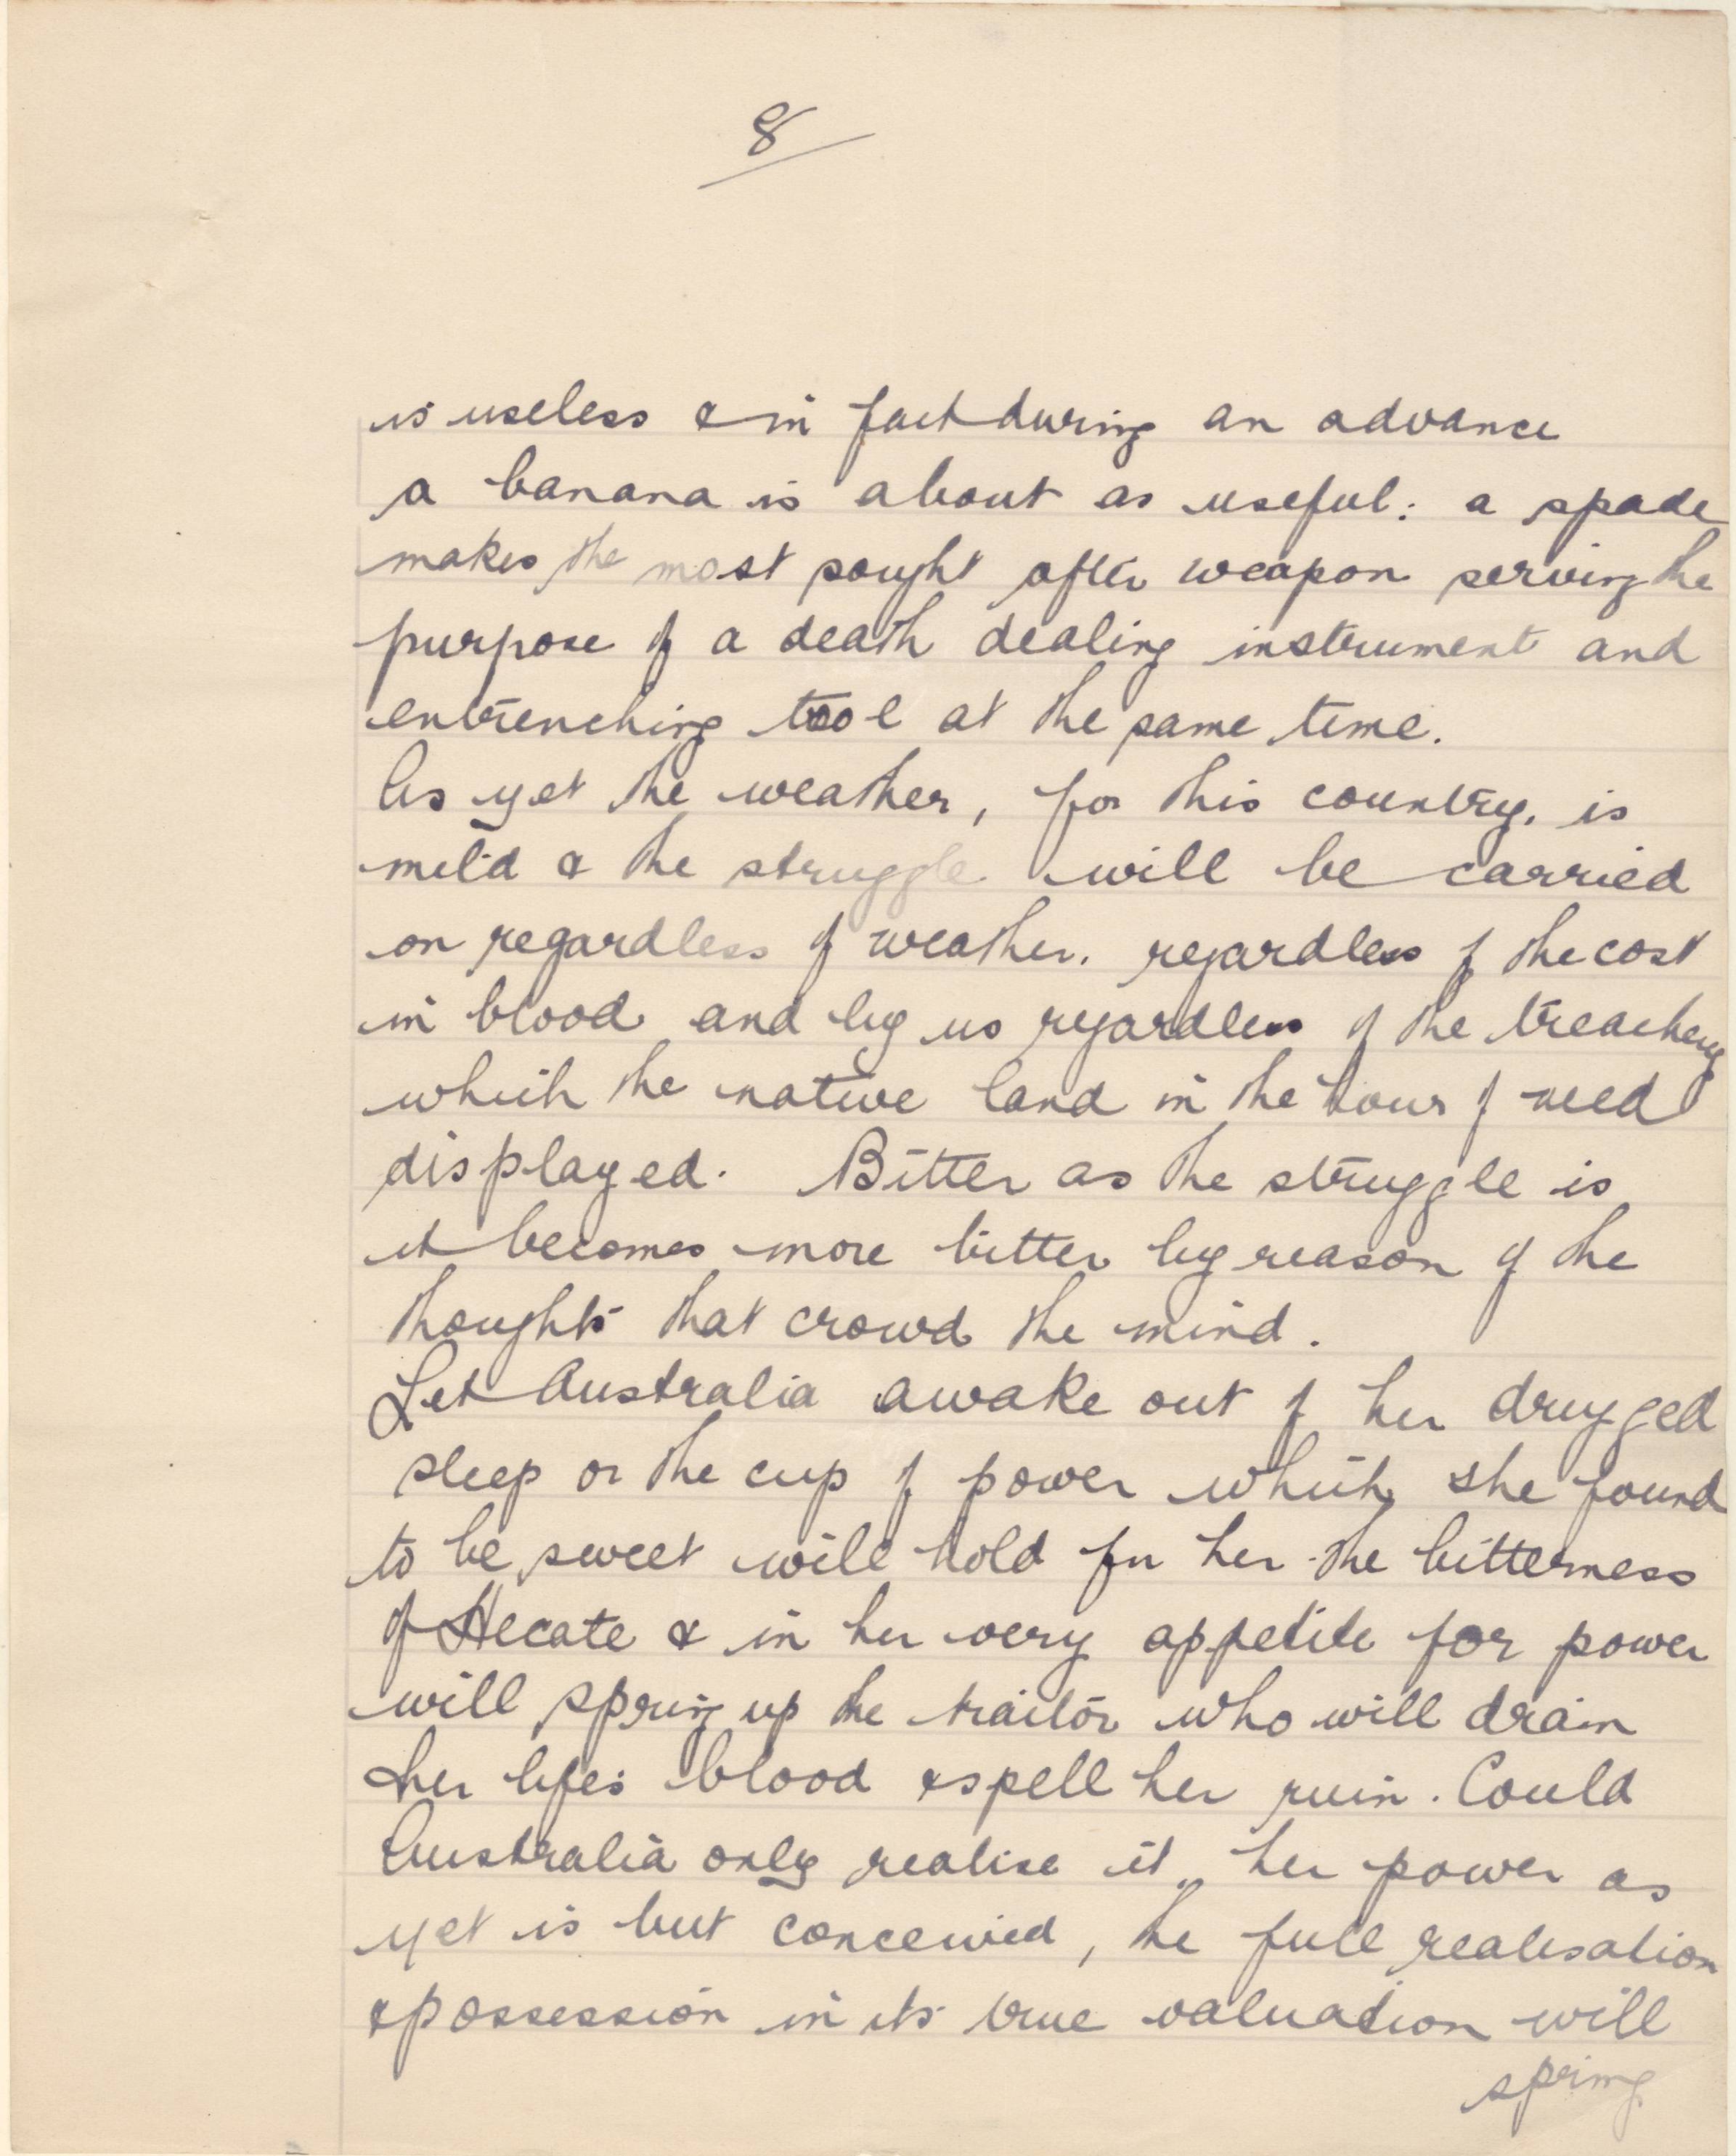 8
is useless & in fact during an advance
a banana is about as useful: a spade
makes the most sought after weapon serving the
purpose of a death dealing instrument and
entrenching tool at the same time.
As yet the weather, for this country, is
mild & the struggle will be carried
on regardless of weather, regardless of the cost
in blood and by us regardless of the treachery
which the native land in the hour of need
displayed. Bitter as the struggle is
it becomes more bitter by reason of the
thoughts that crowd the mind.
Let Australia awake out of her drugged
sleep or the cup of power which she found
to be sweet will hold for her the bitterness
of Hecate & in her very appetite for power
will spring up the traitor who will drain
her lifes blood & spell her ruin. Could
Australia only realise it, her power as
yet is but conceived, the full realisation
& possession in its true valuation will
spring